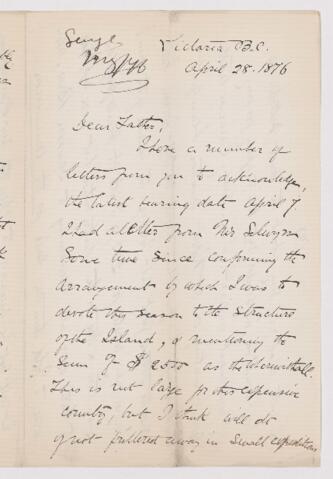 George
Victoria B.C.
April 28. 1876
Dear Father,
I have a number of
letters from you to acknowledge,
the latest bearing date April 7.
I had a letter from Mr Selwyn
Some time since confirming the
arrangement by which I was to
devote this season to the Structure
of the Island, & mentioning the
Sum of $2500 as the wherewithall.
This is not large for this expensive
country, but I think will do
if not frittered away in Small expeditions